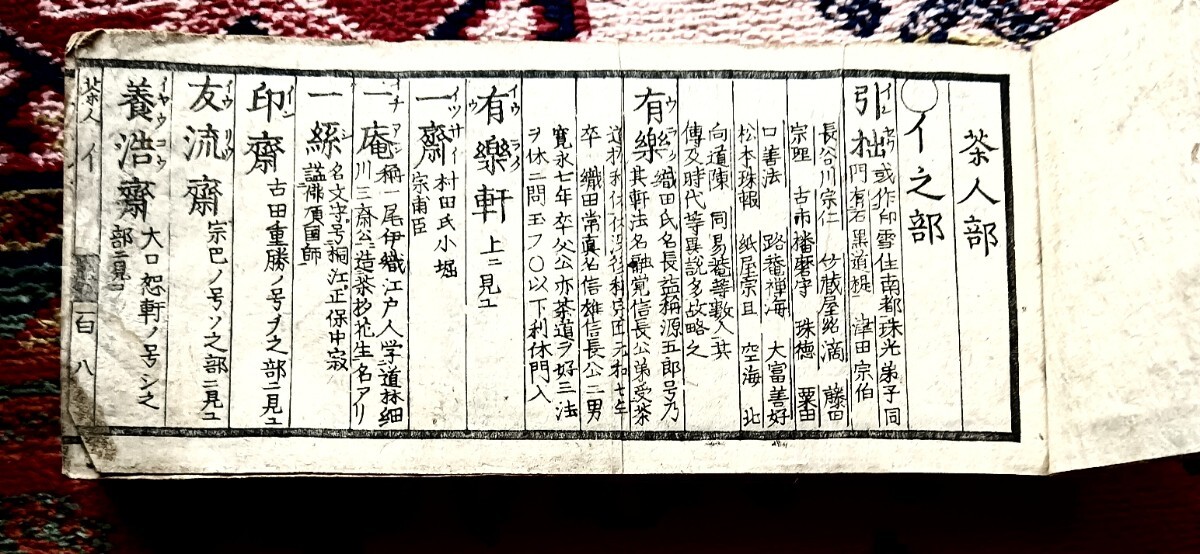 茶人部
イ之部
引拙 インセツ 或作印雪住南都珠光弟子同
門有石黒道提 津田宗伯
長谷川宗仁 竹蔵屋紹滴 藤田
宗理 古市播磨守 珠徳 粟田
口善法 路菴禅海 大富善好
松本珠報 紙屋宗且 空海 北
向道陳 同易菴等数人其
傳及時代等異説多故略之
有樂 ウラク 織田氏名長益稱源五郎号乃
其軒法名融覚信長公弟受茶
道於利休休没後 元和七年
卒 織田常真名信雄信長公二男
寛永七年卒父公亦茶道ヲ好三法
ヲ休ニ問玉フ〇以下利休門人
有樂軒 ウライ 上ニ見ユ
一齋 イツサイ 村田氏小堀
宗甫臣
一庵 イチアン 稱一尾伊織江戸人学道於細
川三斎公造茶杓花生名アリ
一絲 シ 名文守号桐江正保中寂
謚佛頂国師
印齋 イン 古田重勝ノ号ヲ之部ニ見ユ
友流齋 イウリウ 宗巴ノ号ソ之部ニ見ユ
養浩齋 イヤウコウ 大口恕軒ノ号シ之
部ニ見ユ
茶人 イ 百八